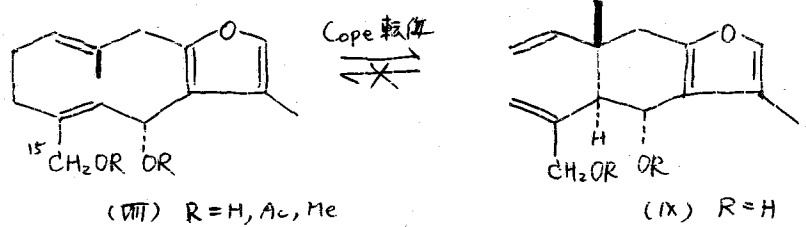 O
Cope 転位
O
15
CH₂OR
OR
H
CH₂OR
OR
(VIII) R=H, Ac, Me
(IX) R=H